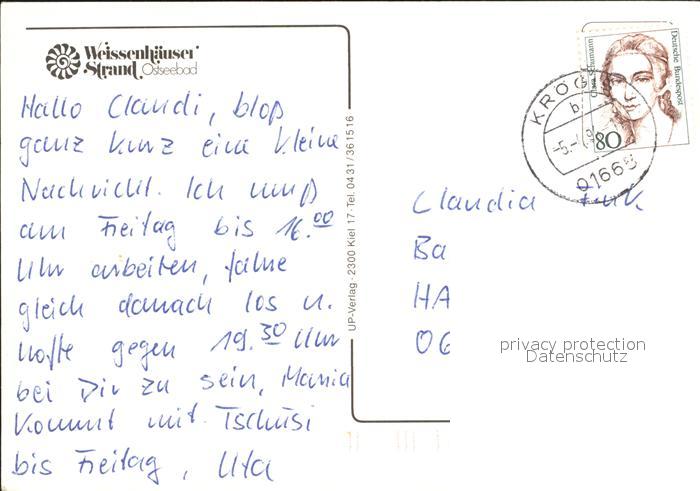 Weissenhäuser
Strand Ostseebad
Hallo Claudi, bloß
ganz kurz eine kleine
Nachricht. Ich muß
am Freitag bis 16.00
Uhr arbeiten, fahre
gleich danach los u.
hoffe gegen 19.30 Uhr
bei Dir zu sein, Maria
kommt mit. Tschüsi
bis Freitag, Uta
UP-Verlag · 2300 Kiel 17 · Tel. 04 31 / 36 15 16
Clara Schumann
Deutsche Bundespost
80
b
-5.-
Claudia
Ba
HA
privacy protection
Datenschutz